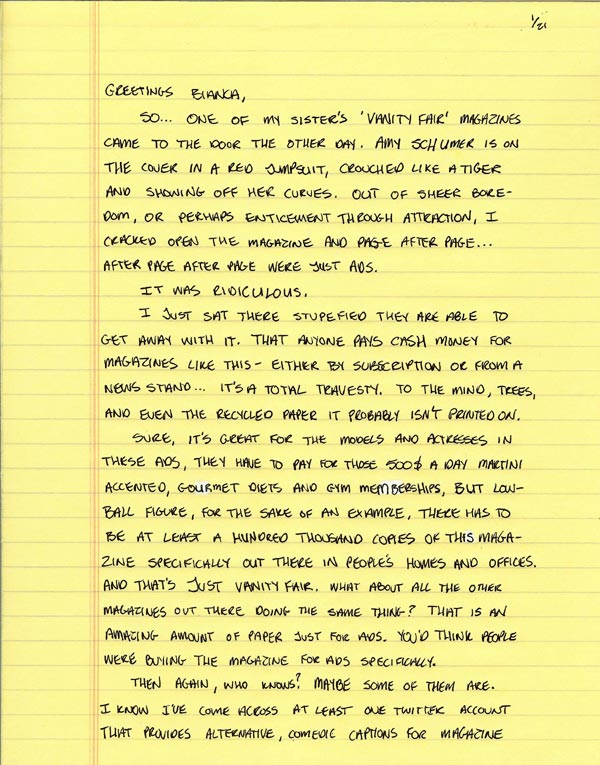 1/21
GREETINGS BIANCA,
SO... ONE OF MY SISTER'S 'VANITY FAIR' MAGAZINES
CAME TO THE DOOR THE OTHER DAY. AMY SCHUMER IS ON
THE COVER IN A RED JUMPSUIT, CROUCHED LIKE A TIGER
AND SHOWING OFF HER CURVES. OUT OF SHEER BORE-
DOM, OR PERHAPS ENTICEMENT THROUGH ATTRACTION, I
CRACKED OPEN THE MAGAZINE AND PAGE AFTER PAGE...
AFTER PAGE AFTER PAGE WERE JUST ADS.
IT WAS RIDICULOUS.
I JUST SAT THERE STUPEFIED THEY ARE ABLE TO
GET AWAY WITH IT. THAT ANYONE PAYS CASH MONEY FOR
MAGAZINES LIKE THIS - EITHER BY SUBSCRIPTION OR FROM A
NEWS STAND... IT'S A TOTAL TRAVESTY. TO THE MIND, TREES,
AND EVEN THE RECYCLED PAPER IT PROBABLY ISN'T PRINTED ON.
SURE, IT'S GREAT FOR THE MODELS AND ACTRESSES IN
THESE ADS, THEY HAVE TO PAY FOR THOSE 500$ A DAY MARTINI
ACCENTED, GOURMET DIETS AND GYM MEMBERSHIPS, BUT LOW-
BALL FIGURE, FOR THE SAKE OF AN EXAMPLE, THERE HAS TO
BE AT LEAST A HUNDRED THOUSAND COPIES OF THIS MAGA-
ZINE SPECIFICALLY OUT THERE IN PEOPLE'S HOMES AND OFFICES.
AND THAT'S JUST VANITY FAIR. WHAT ABOUT ALL THE OTHER
MAGAZINES OUT THERE DOING THE SAME THING? THAT IS AN
AMAZING AMOUNT OF PAPER JUST FOR ADS. YOU'D THINK PEOPLE
WERE BUYING THE MAGAZINE FOR ADS SPECIFICALLY.
THEN AGAIN, WHO KNOWS? MAYBE SOME OF THEM ARE.
I KNOW I'VE COME ACROSS AT LEAST ONE TWITTER ACCOUNT
THAT PROVIDES ALTERNATIVE, COMEDIC CAPTIONS FOR MAGAZINE